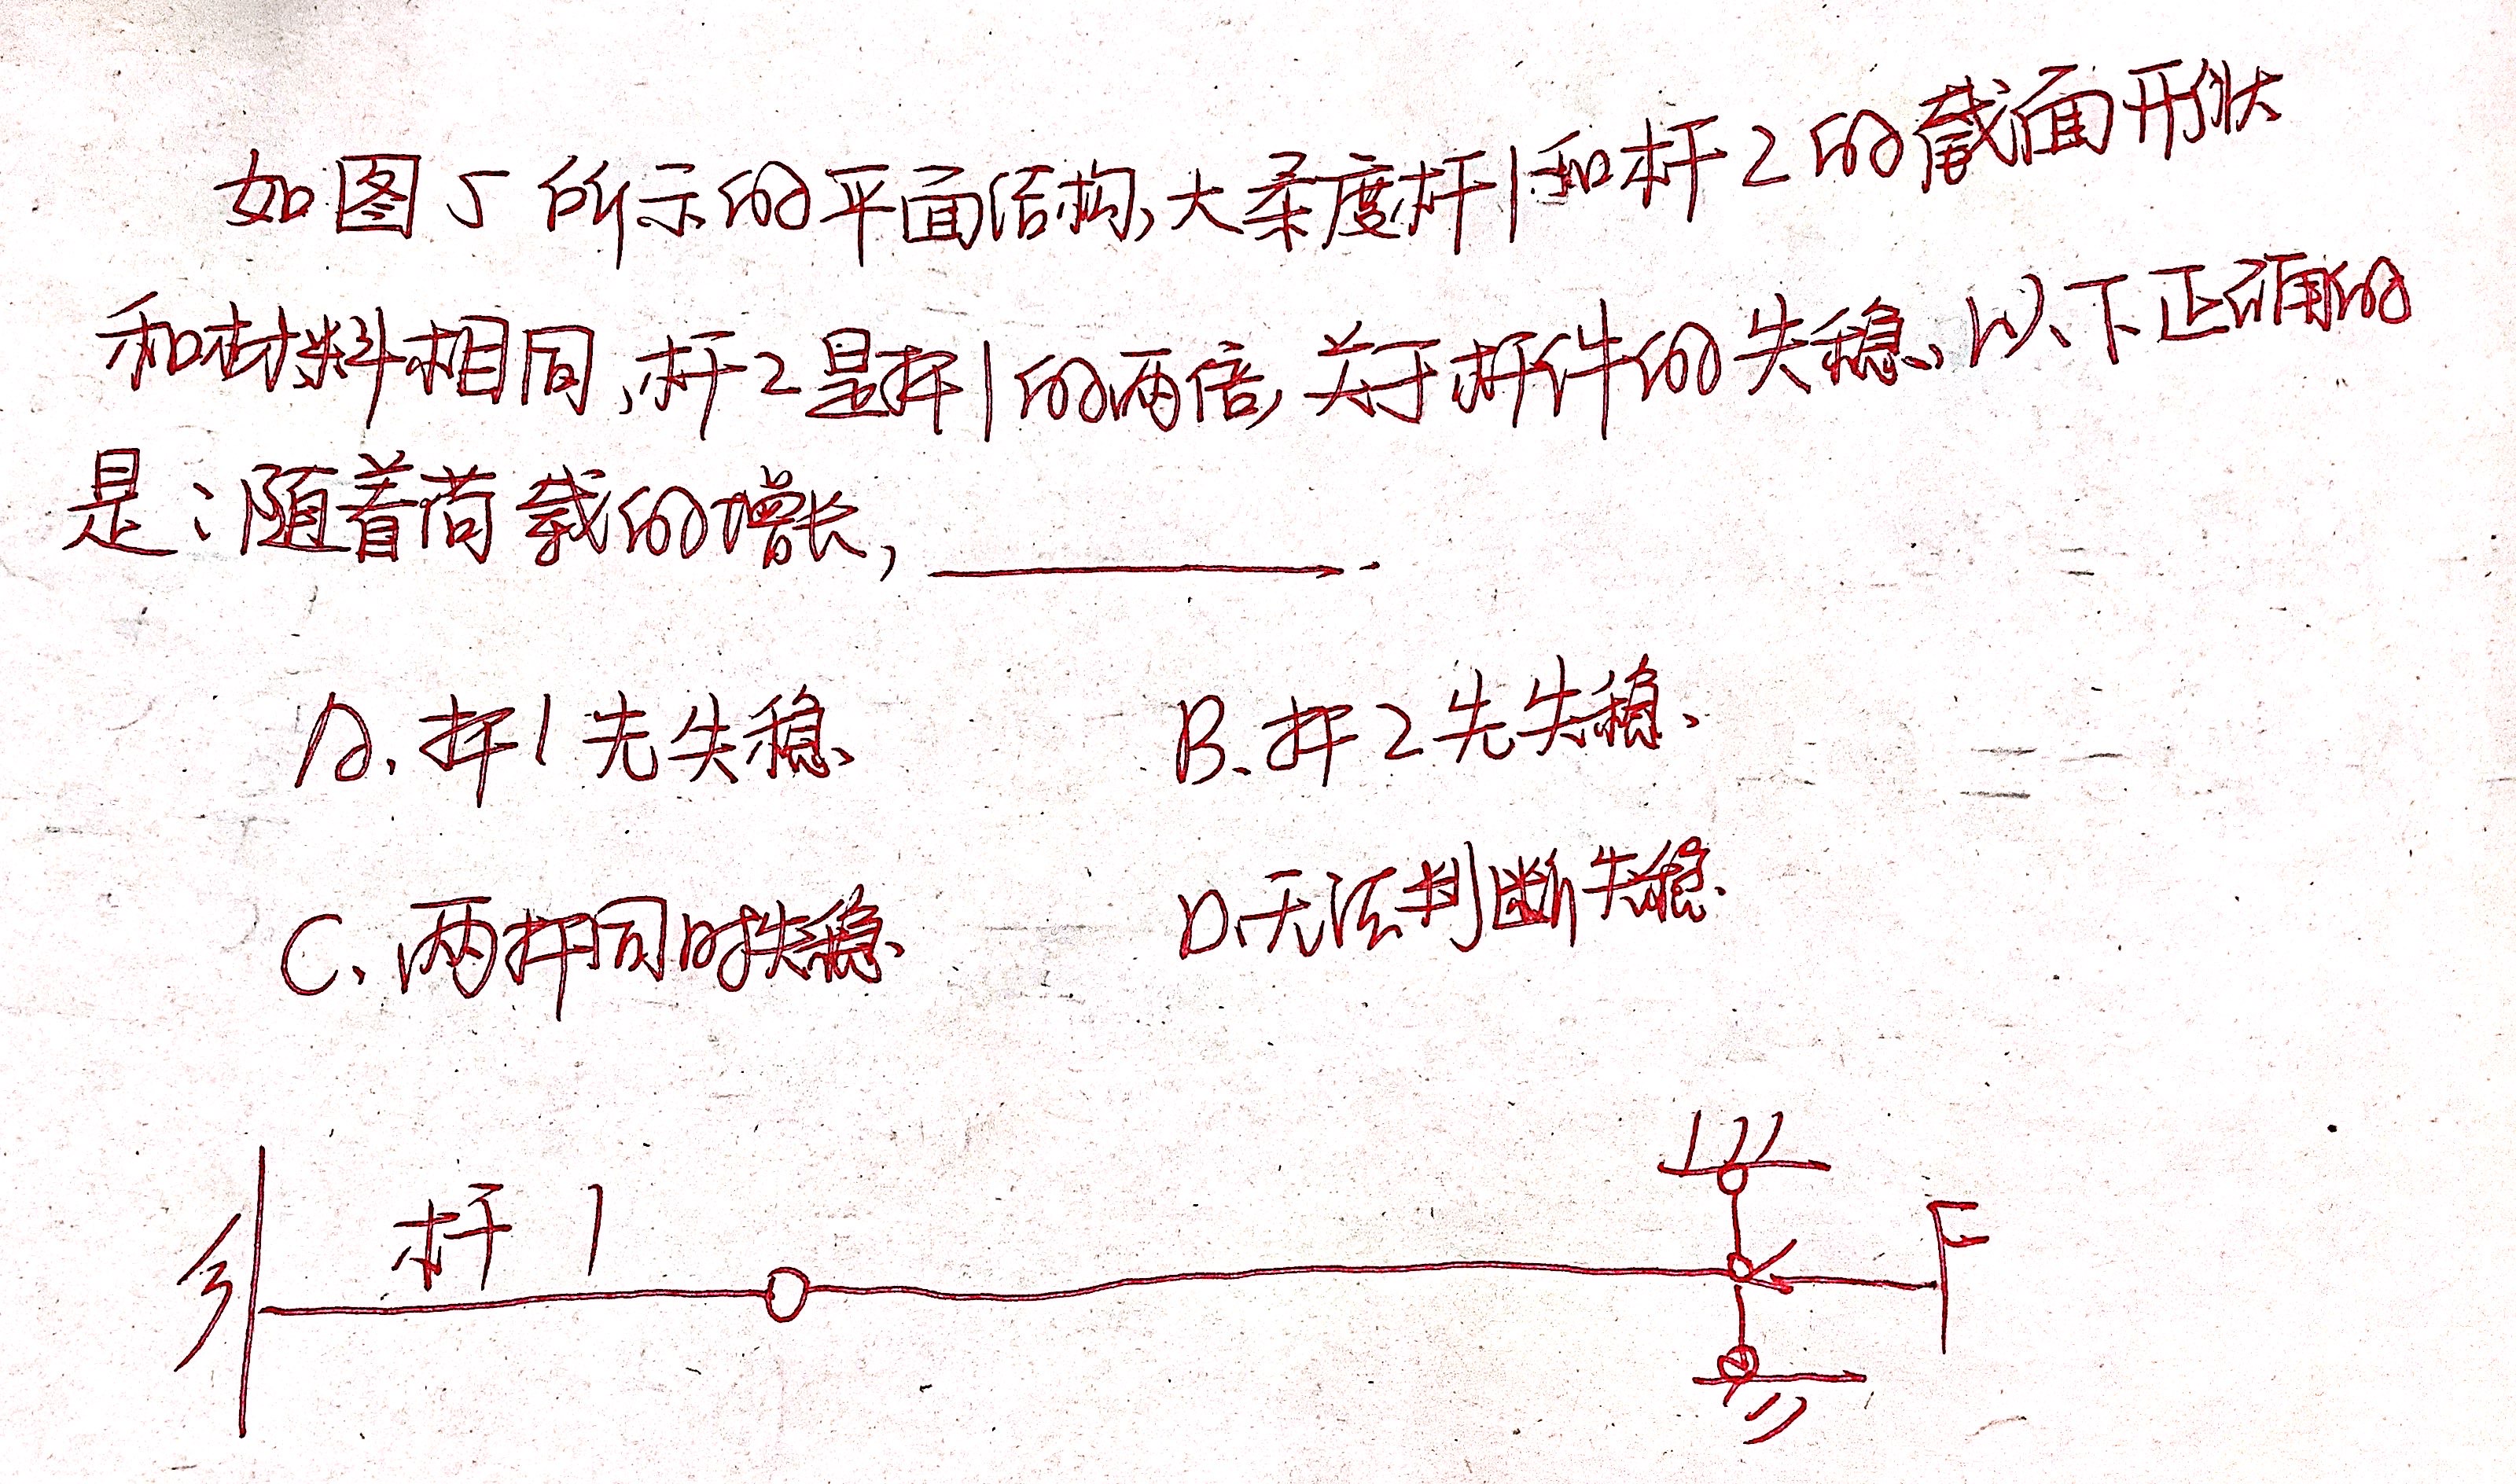 如图5所示的平面结构,大柔度杆1和杆2的截面形状
和材料相同,杆2是杆1的两倍,关于杆件的失稳,以下正确的
是:随着荷载的增长,
A.杆1先失稳.
B.杆2先失稳.
C.两杆同时失稳.
D.无法判断失稳.
杆1
F